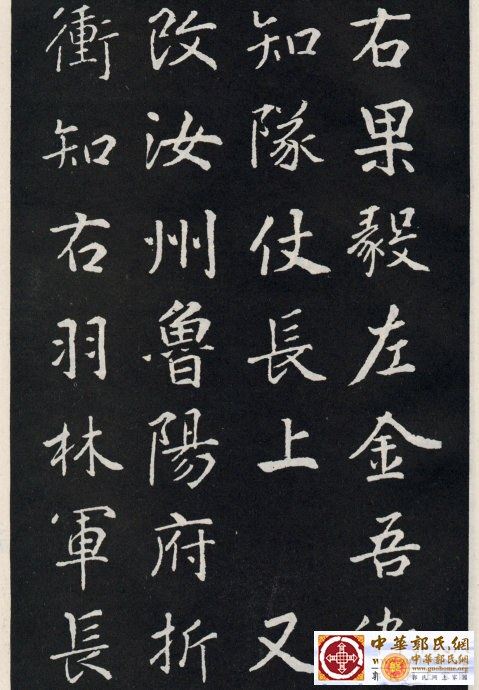 右果毅左金吾
知隊仗長上又
改汝州魯陽府折
衝知右羽林軍長
中華郭氏網
中華郭氏網
www.guohome.org
郭氏網上家園